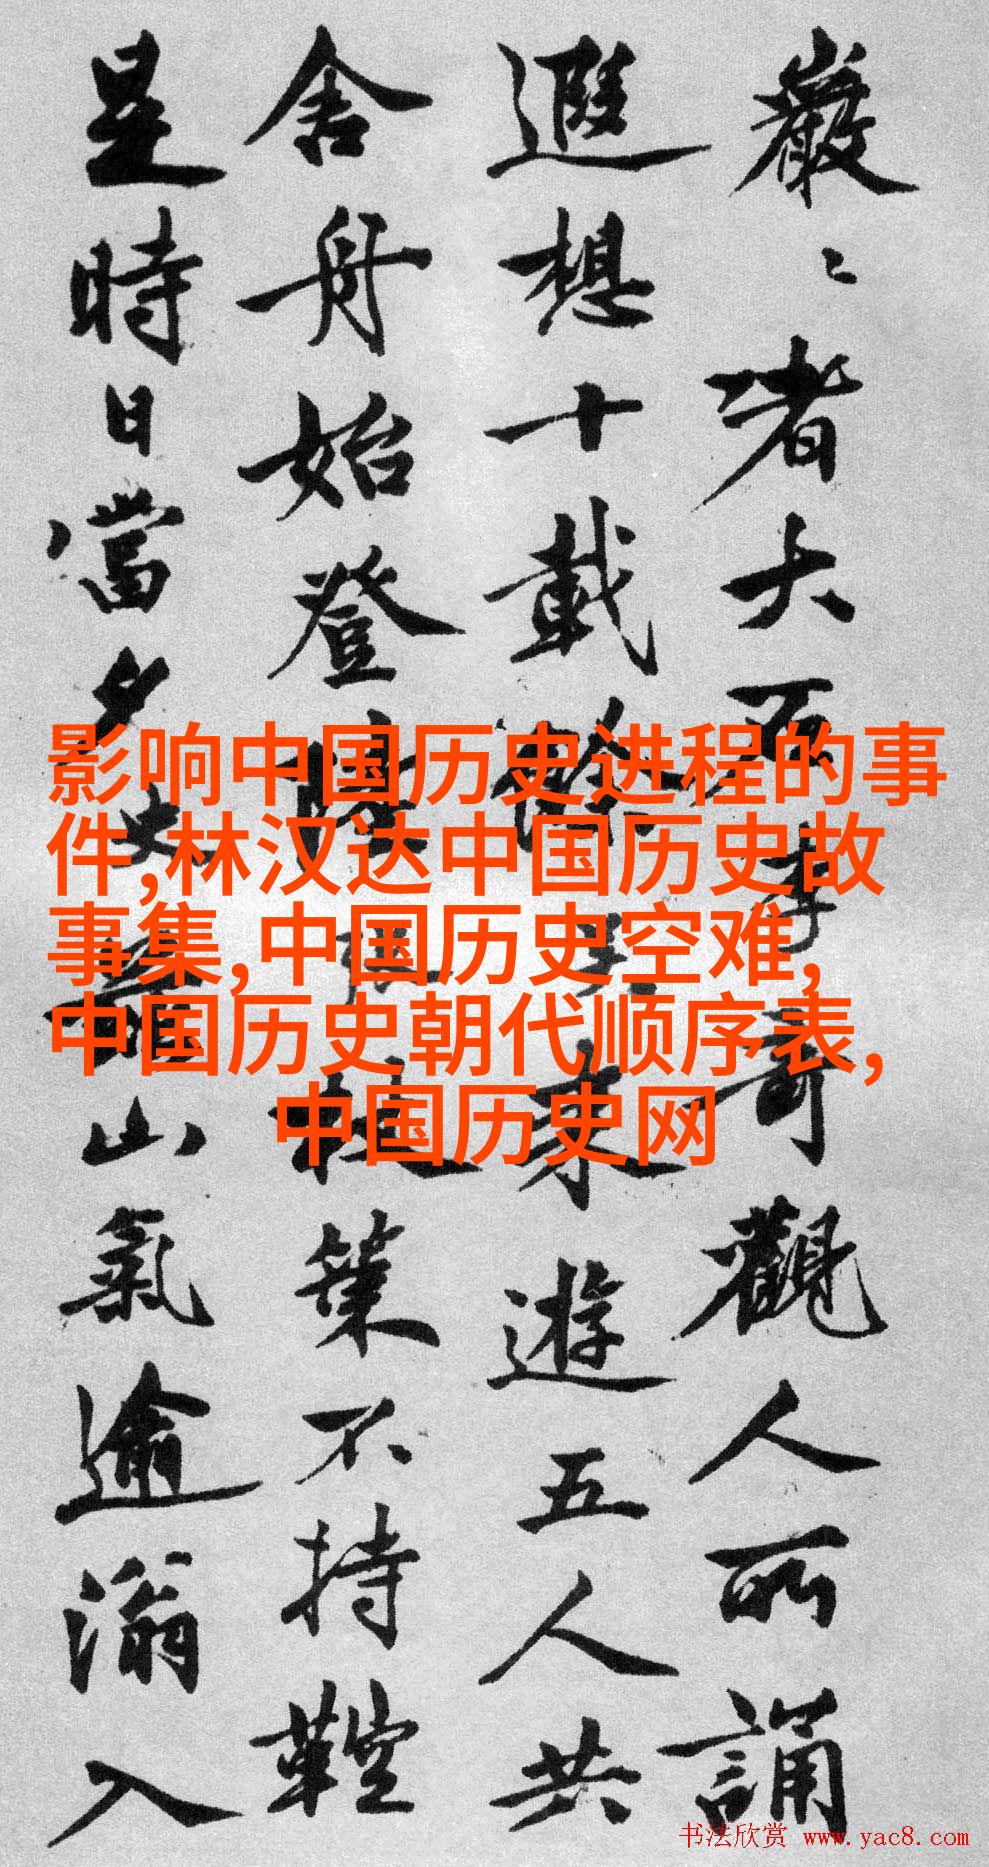 巖〻者大而奇觀人所誦
遐想十載餘來遊五人共
舍舟始登陸杖策不持鞚
是時日當夕山氣逾滃入
影响中国历史进程的事
件,林汉达中国历史故
事集,中国历史空难,
中国历史朝代顺序表,
中国历史网
书法欣赏 www.yac8.com